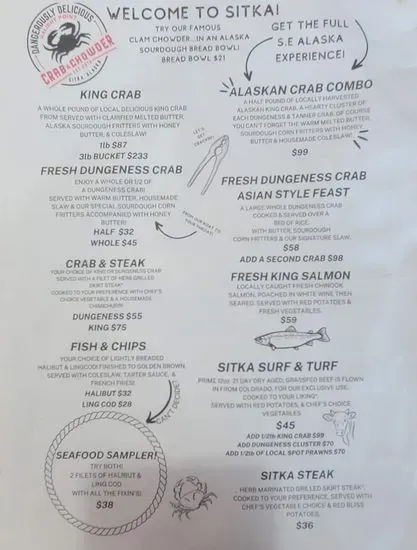 DANGEROUSLY DELICIOUS
CRAB & CHOWDER
SITKA ALASKA
WELCOME TO SITKA!
TRY OUR FAMOUS
CLAM CHOWDER...IN AN ALASKA
SOURDOUGH BREAD BOWL!
BREAD BOWL $21
GET THE FULL
S.E ALASKA
EXPERIENCE!
KING CRAB
A WHOLE POUND OF LOCAL DELICIOUS KING CRAB
FROM SERVED WITH CLARIFIED MELTED BUTTER,
ALASKA SOURDOUGH CORN FRITTERS WITH HONEY
BUTTER, & COLESLAW!
1lb $87
3lb BUCKET $233
FRESH DUNGENESS CRAB
ENJOY A WHOLE OR 1/2 OF
A DUNGENESS CRAB!
SERVED WITH WARM BUTTER, HOUSEMADE
SLAW & OUR SPECIAL SOURDOUGH CORN
FRITTERS ACCOMPANIED WITH HONEY
BUTTER!
HALF $32
WHOLE $45
CRAB & STEAK
YOUR CHOICE OF KING OR DUNGENESS CRAB
SERVED WITH A FILET OF HERB GRILLED
SKIRT STEAK*
COOKED TO YOUR PREFERENCE WITH CHEF'S
CHOICE VEGETABLE & A HOUSEMADE
CHIMICHURRI
DUNGENESS $55
KING $75
FISH & CHIPS
YOUR CHOICE OF LIGHTLY BREADED
HALIBUT & LINGCOD! FINISHED TO GOLDEN BROWN,
SERVED WITH COLESLAW, TARTER SAUCE, &
FRENCH FRIES!
HALIBUT $32
LING COD $28
CAN'T DECIDE?
SEAFOOD SAMPLER!
TRY BOTH!
2 FILETS OF HALIBUT &
LING COD
WITH ALL THE FIXIN'S!
$38
LET'S
GET
CRACKING!
FROM OUR BOAT TO
YOUR THROAT!
ALASKAN CRAB COMBO
A HALF POUND OF LOCALLY HARVESTED
ALASKAN KING CRAB, A HEARTY CLUSTER OF
EACH DUNGENESS & TANNER CRAB, OF COURSE
YOU CAN'T FORGET THE WARM MELTED BUTTER,
SOURDOUGH CORN FRITTERS WITH HONEY
BUTTER & HOUSEMADE COLESLAW!
$99
FRESH DUNGENESS CRAB
ASIAN STYLE FEAST
A LARGE WHOLE DUNGENESS CRAB
COOKED & SERVED OVER A
BED OF RICE.
WITH BUTTER, SOURDOUGH
CORN FRITTERS & OUR SIGNATURE SLAW.
$58
ADD A SECOND CRAB $98
FRESH KING SALMON
LOCALLY CAUGHT FRESH CHINOOK
SALMON, POACHED IN WHITE WINE THEN
SEARED. SERVED WITH RED POTATOES &
FRESH VEGETABLES.
$59
SITKA SURF & TURF
PRIME 12oz. 21 DAY DRY AGED, GRASSFED BEEF IS FLOWN
IN FROM COLORADO, FOR OUR EXCLUSIVE USE.
COOKED TO YOUR LIKING*.
SERVED WITH RED POTATOES, & CHEF'S CHOICE
VEGETABLES
$45
ADD 1/2lb KING CRAB $99
ADD DUNGENESS CLUSTER $70
ADD 1/2lb OF LOCAL SPOT PRAWNS $70
SITKA STEAK
HERB MARINATED GRILLED SKIRT STEAK*,
COOKED TO YOUR PREFERENCE, SERVED WITH
CHEF'S VEGETABLE CHOICE & RED BLISS
POTATOES.
$36